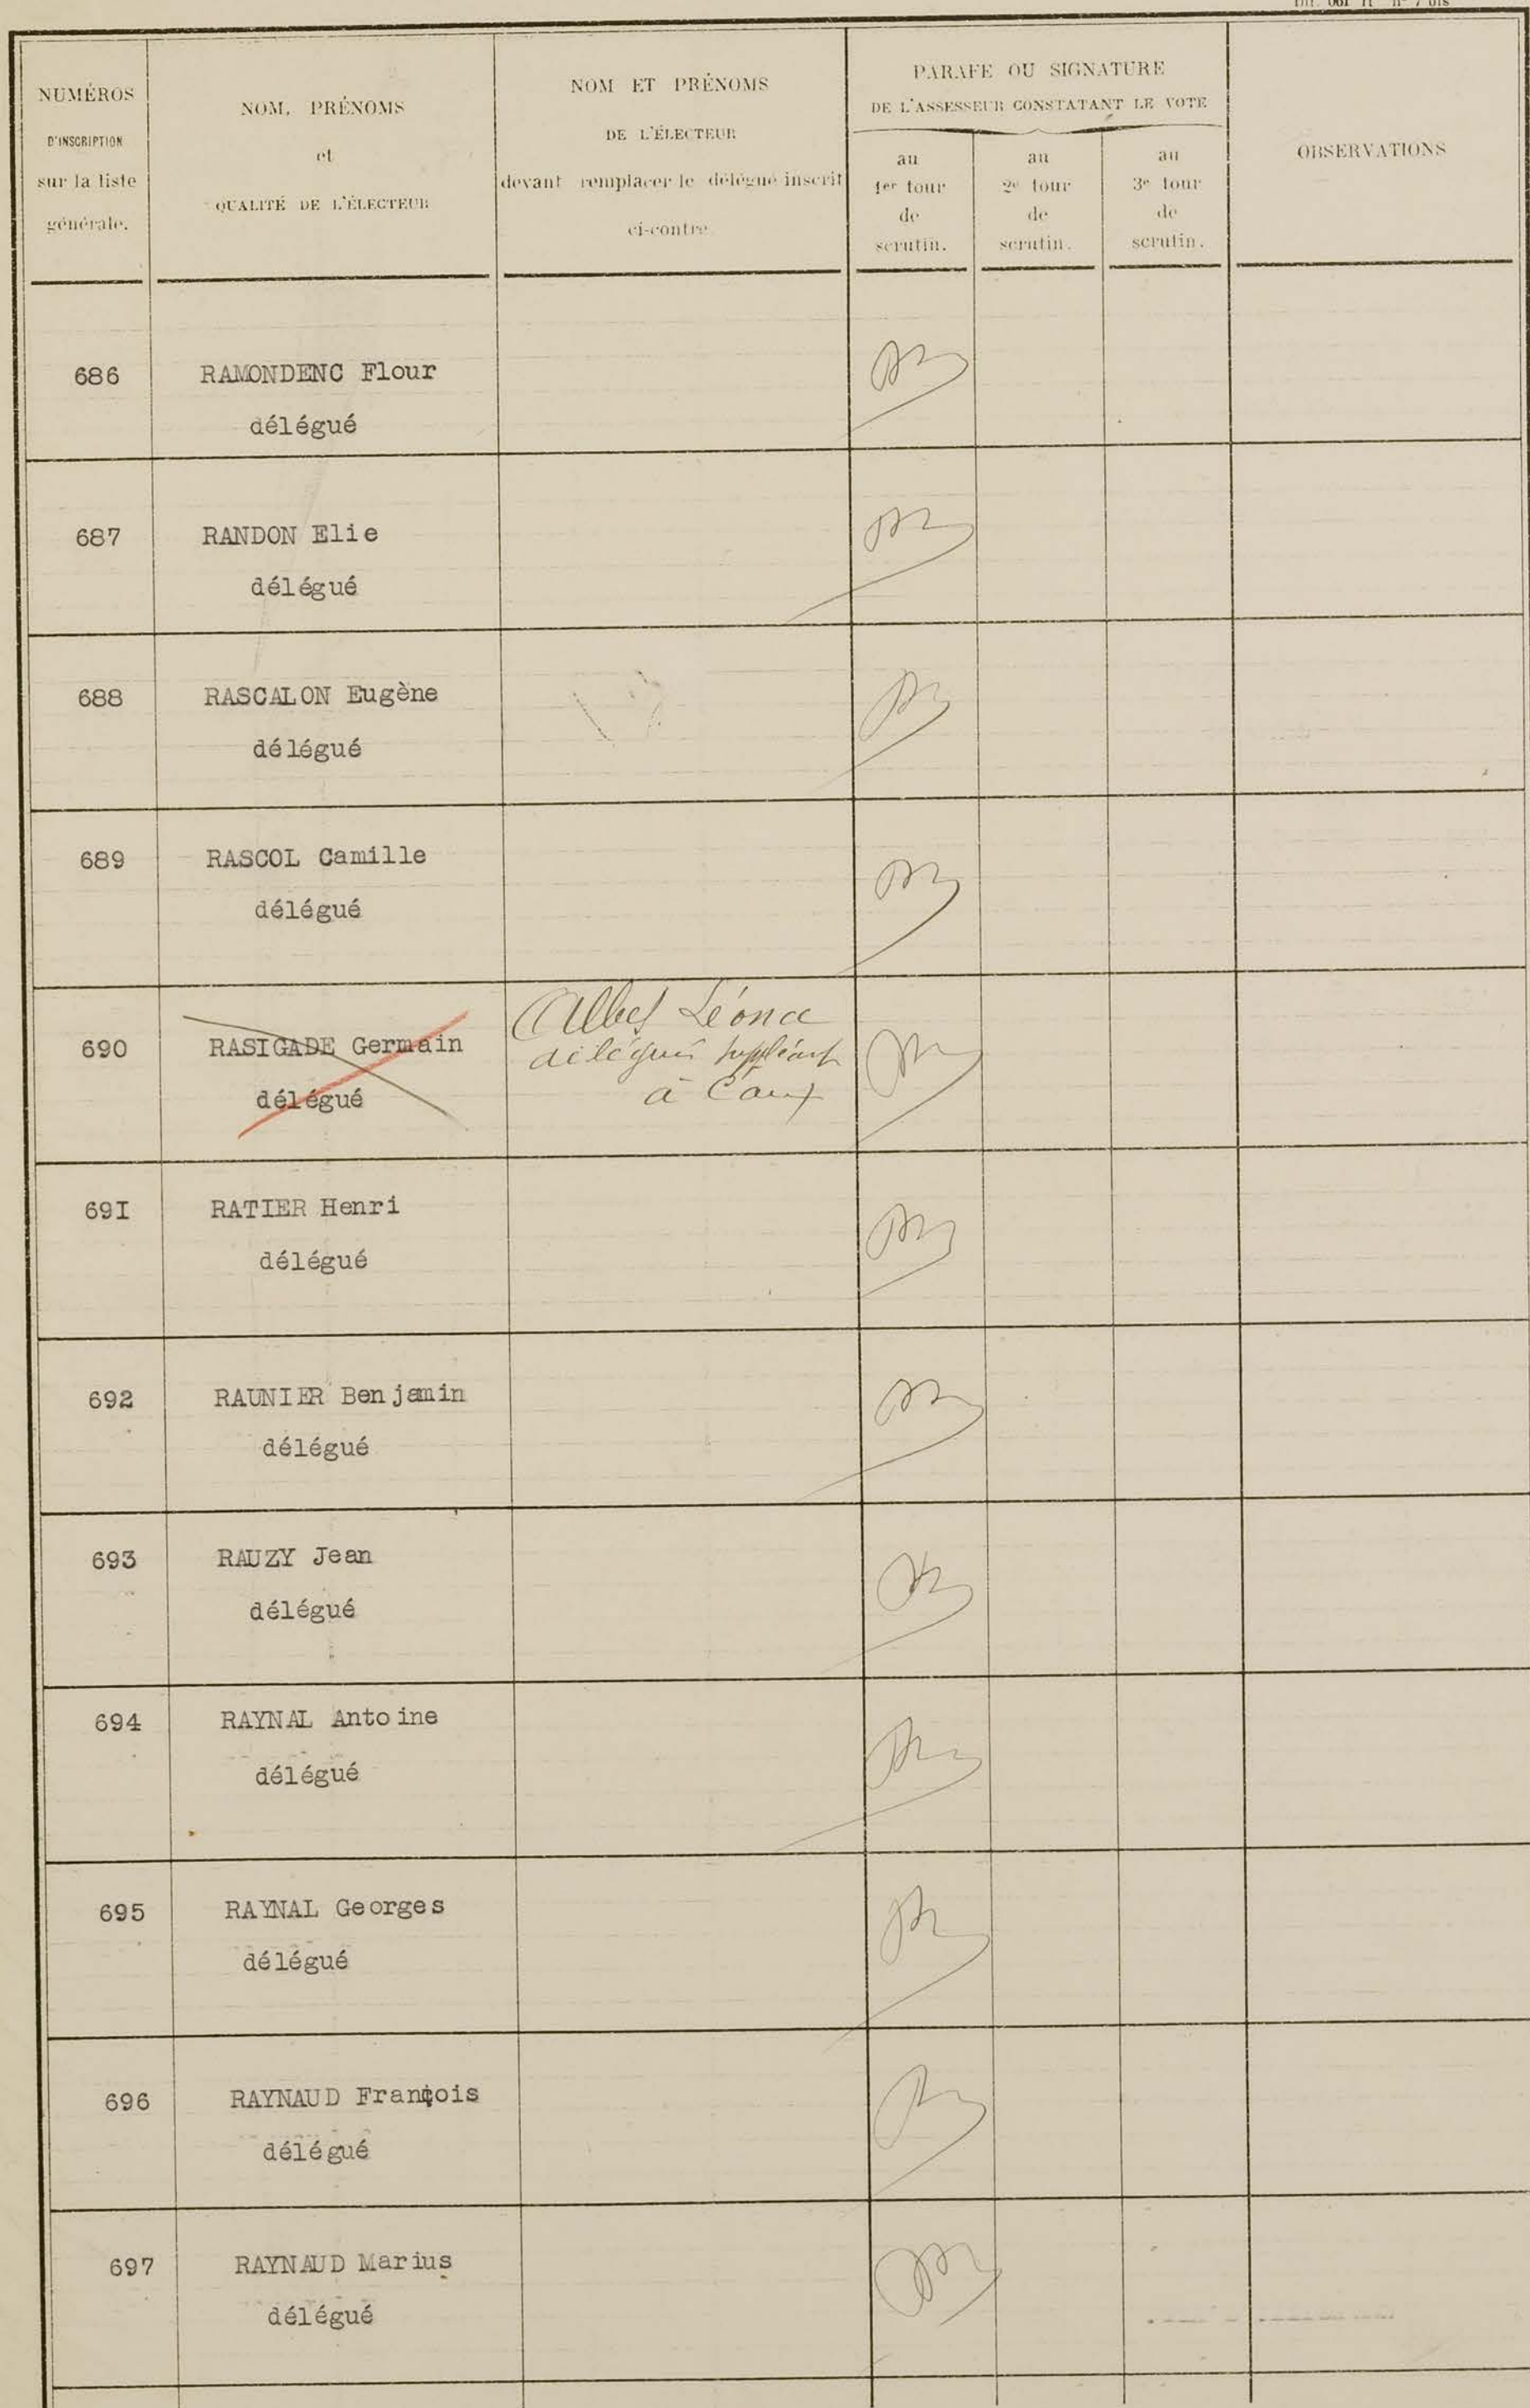 NUMÉROS
D'INSCRIPTION
sur la liste
générale.
NOM, PRÉNOMS
et
QUALITÉ DE L'ÉLECTEUR
NOM ET PRÉNOMS
DE L'ÉLECTEUR
devant remplacer le délégué inscrit
ci-contre
PARAFE OU SIGNATURE
DE L'ASSESSEUR CONSTATANT LE VOTE
au
1er tour
de
scrutin.
au
2e tour
de
scrutin.
au
3e tour
de
scrutin.
OBSERVATIONS
686 RAMONDENC Flour
délégué
687 RANDON Elie
délégué
688 RASCALON Eugène
délégué
689 RASCOL Camille
délégué
690 RASIGADE Germain
délégué
Léonce
délégué suppléant
à Caux
69I RATIER Henri
délégué
692 RAUNIER Benjamin
délégué
693 RAUZY Jean
délégué
694 RAYNAL Antoine
délégué
695 RAYNAL Georges
délégué
696 RAYNAUD François
délégué
697 RAYNAUD Marius
délégué